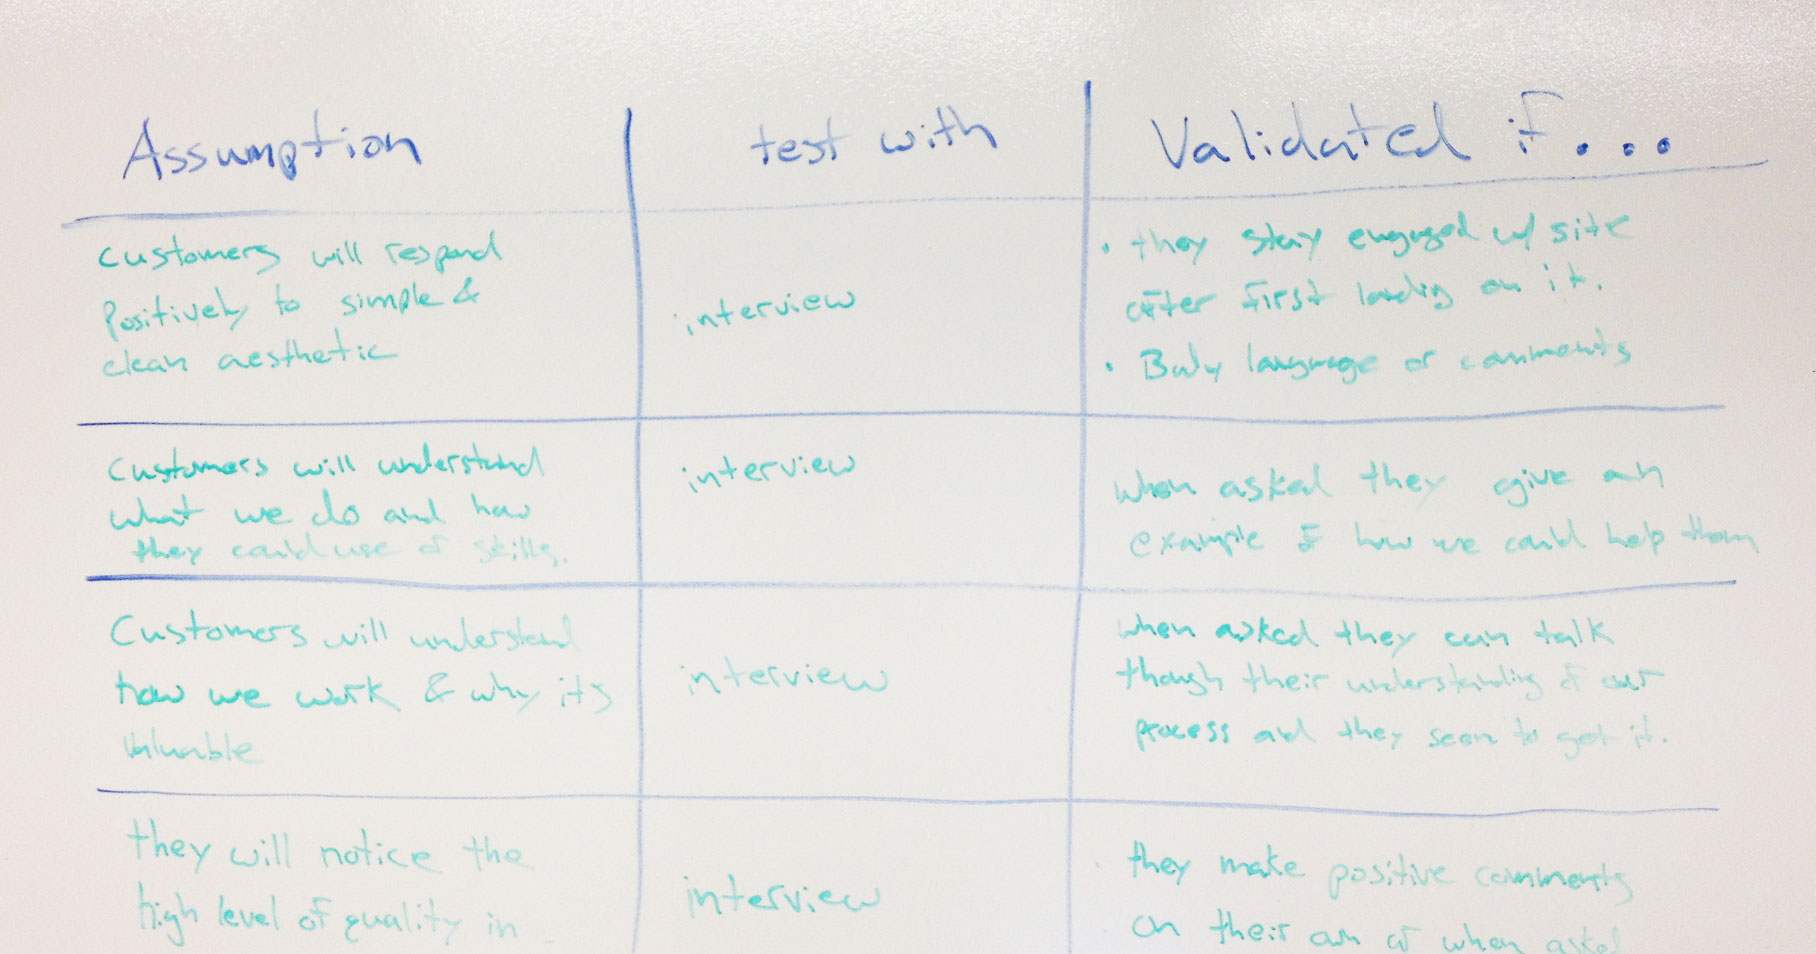 Assumption
test with
Validated if...
Customers will respond
Positively to simple &
clean aesthetic
interview
• they stay engaged w/ site
after first landing on it.
• Body language or comments
Customers will understand
what we do and how
they could use or skills.
interview
when asked they give an
example of how we could help them
Customers will understand
how we work & why its
valuable
interview
when asked they can talk
though their understanding of our
process and they seem to get it.
they will notice the
high level of quality in
interview
they make positive comments
on their own or when asked